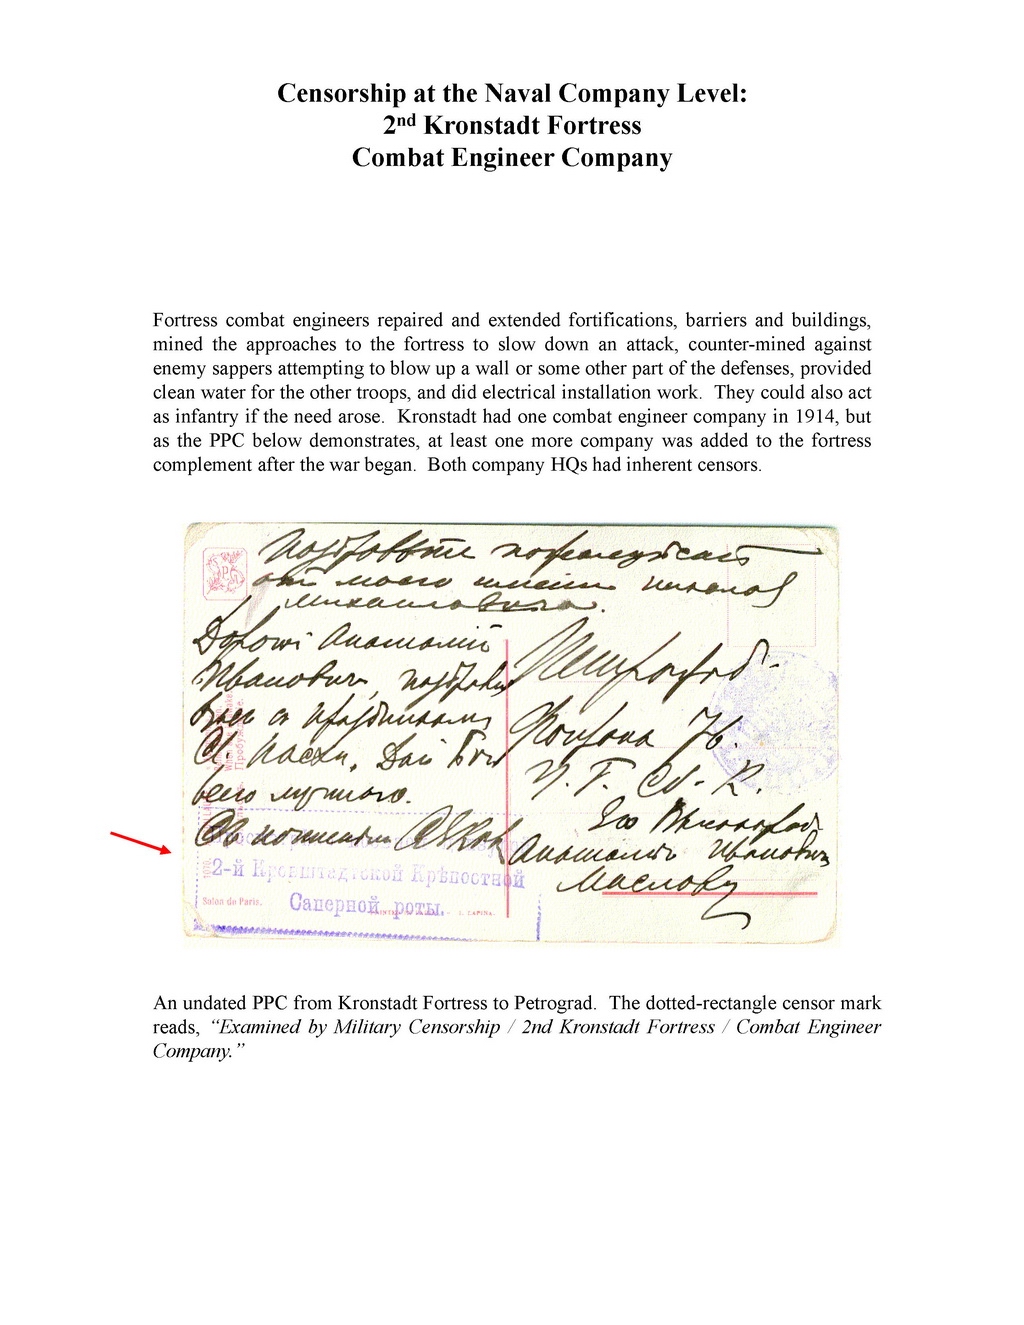 Censorship at the Naval Company Level:
2nd Kronstadt Fortress
Combat Engineer Company
Fortress combat engineers repaired and extended fortifications, barriers and buildings,
mined the approaches to the fortress to slow down an attack, counter-mined against
enemy sappers attempting to blow up a wall or some other part of the defenses, provided
clean water for the other troops, and did electrical installation work. They could also act
as infantry if the need arose. Kronstadt had one combat engineer company in 1914, but
as the PPC below demonstrates, at least one more company was added to the fortress
complement after the war began. Both company HQs had inherent censors.
от моего имени
Михайловича.
Анатолий
Иванович, поздравляю
Вас с праздником
Св. Пасхи. Дай Бог
всего лучшего.
2-й Кронштадтской Крѣпостной
Саперной роты.
Salon de Paris.
L. LAPINA.
Петроград.
76.
Анатолію Ивановичу
Маслову
An undated PPC from Kronstadt Fortress to Petrograd. The dotted-rectangle censor mark
reads, “Examined by Military Censorship / 2nd Kronstadt Fortress / Combat Engineer
Company.”